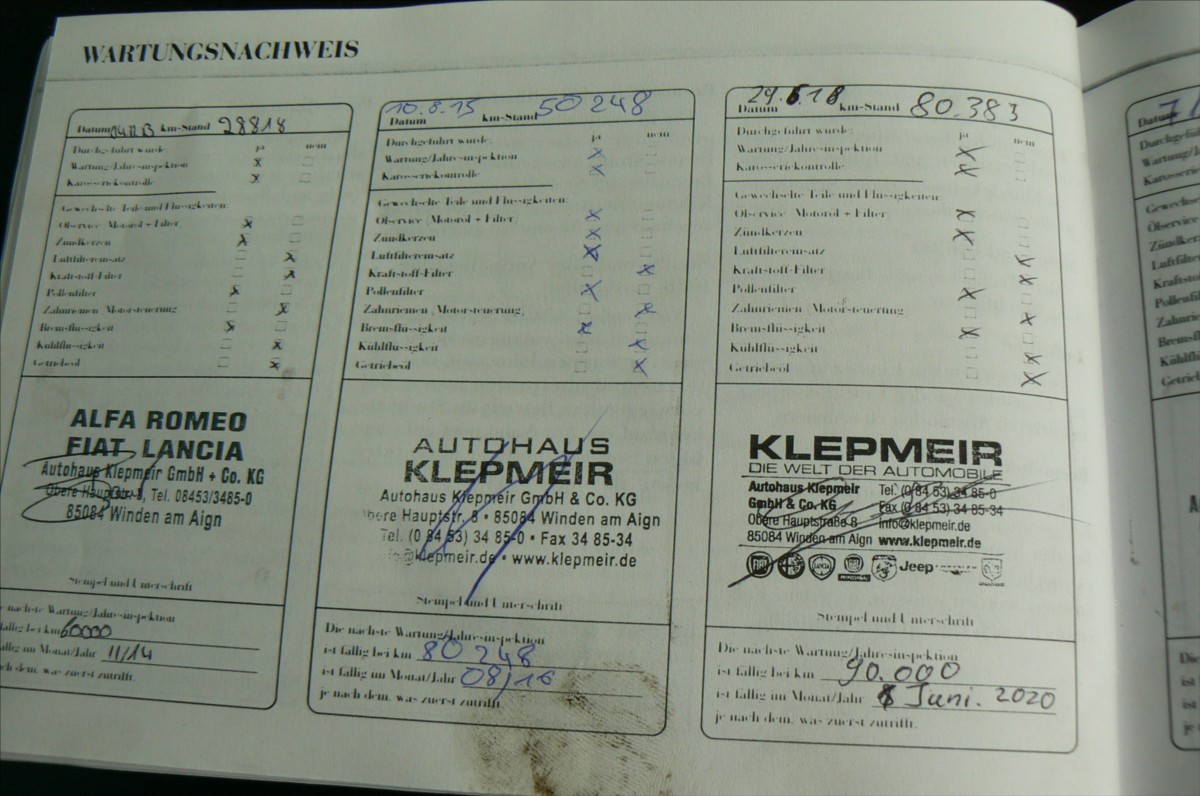 WARTUNGSNACHWEIS
Datum 04.11.13 km-Stand 28818
Durchgeführt wurde: ja nein
Wartung/Jahres-inspektion x
Karosseriekontrolle x
Gewechselte Teile und Flüssigkeiten:
Ölservice (Motoröl + Filter x
Zündkerzen x
Luftfiltereinsatz x
Kraftstoff-Filter x
Pollenfilter x
Zahnriemen (Motorsteuerung) x
Bremsflüssigkeit x
Kühlflüssigkeit x
Getriebeöl x
ALFA ROMEO
FIAT LANCIA
Autohaus Klepmeir GmbH + Co. KG
Obere Hauptstr. 8, Tel. 08453/3485-0
85084 Winden am Aign
Stempel und Unterschrift
nächste Wartung/Jahres-inspektion
fällig bei km 60000
fällig im Monat/Jahr 11/14
nach dem, was zuerst zutrifft.
10.8.15 50248
Datum km-Stand
Durchgeführt wurde: ja nein
Wartung/Jahres-inspektion x
Karosseriekontrolle x
Gewechselte Teile und Flüssigkeiten:
Ölservice (Motoröl + Filter x
Zündkerzen x
Luftfiltereinsatz x
Kraftstoff-Filter x
Pollenfilter x
Zahnriemen (Motorsteuerung) x
Bremsflüssigkeit x
Kühlflüssigkeit x
Getriebeöl x
AUTOHAUS
KLEPMEIR
Autohaus Klepmeir GmbH & Co. KG
bere Hauptstr. 8 • 85084 Winden am Aign
Tel. (0 84 53) 34 85-0 • Fax 34 85-34
info@klepmeir.de • www.klepmeir.de
Stempel und Unterschrift
Die nächste Wartung/Jahres-inspektion
ist fällig bei km 80248
ist fällig im Monat/Jahr 08/16
je nach dem, was zuerst zutrifft.
29.6.18 80.383
Datum km-Stand
Durchgeführt wurde: ja nein
Wartung/Jahres-inspektion x
Karosseriekontrolle x
Gewechselte Teile und Flüssigkeiten:
Ölservice (Motoröl + Filter x
Zündkerzen x
Luftfiltereinsatz x
Kraftstoff-Filter x
Pollenfilter x
Zahnriemen (Motorsteuerung) x
Bremsflüssigkeit x
Kühlflüssigkeit x
Getriebeöl x
KLEPMEIR
DIE WELT DER AUTOMOBILE
Autohaus Klepmeir Tel. (0 84 53) 34 85-0
GmbH & Co. KG Fax (0 84 53) 34 85-34
Obere Hauptstraße 8 info@klepmeir.de
85084 Winden am Aign www.klepmeir.de
FIAT Jeep
Stempel und Unterschrift
Die nächste Wartung/Jahres-inspektion
ist fällig bei km 90.000
ist fällig im Monat/Jahr Juni. 2020
je nach dem, was zuerst zutrifft.